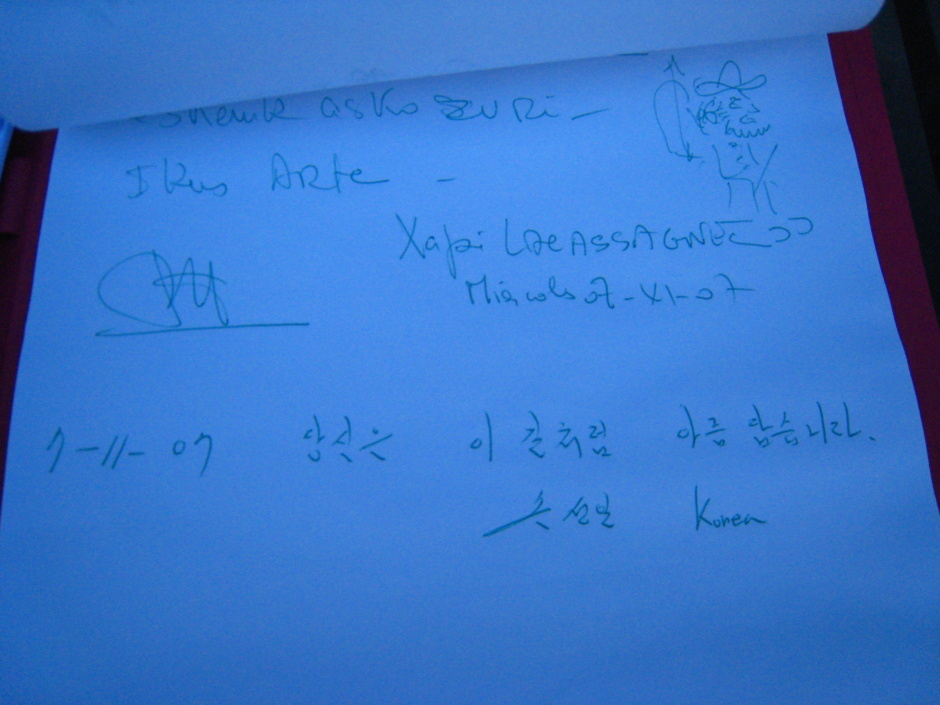 asko zuri –
Ikus Arte –
Xapi
Miércoles 07-XI-07
7-11-07 당신은 이 길처럼 아름답습니다.
손선일 Korea